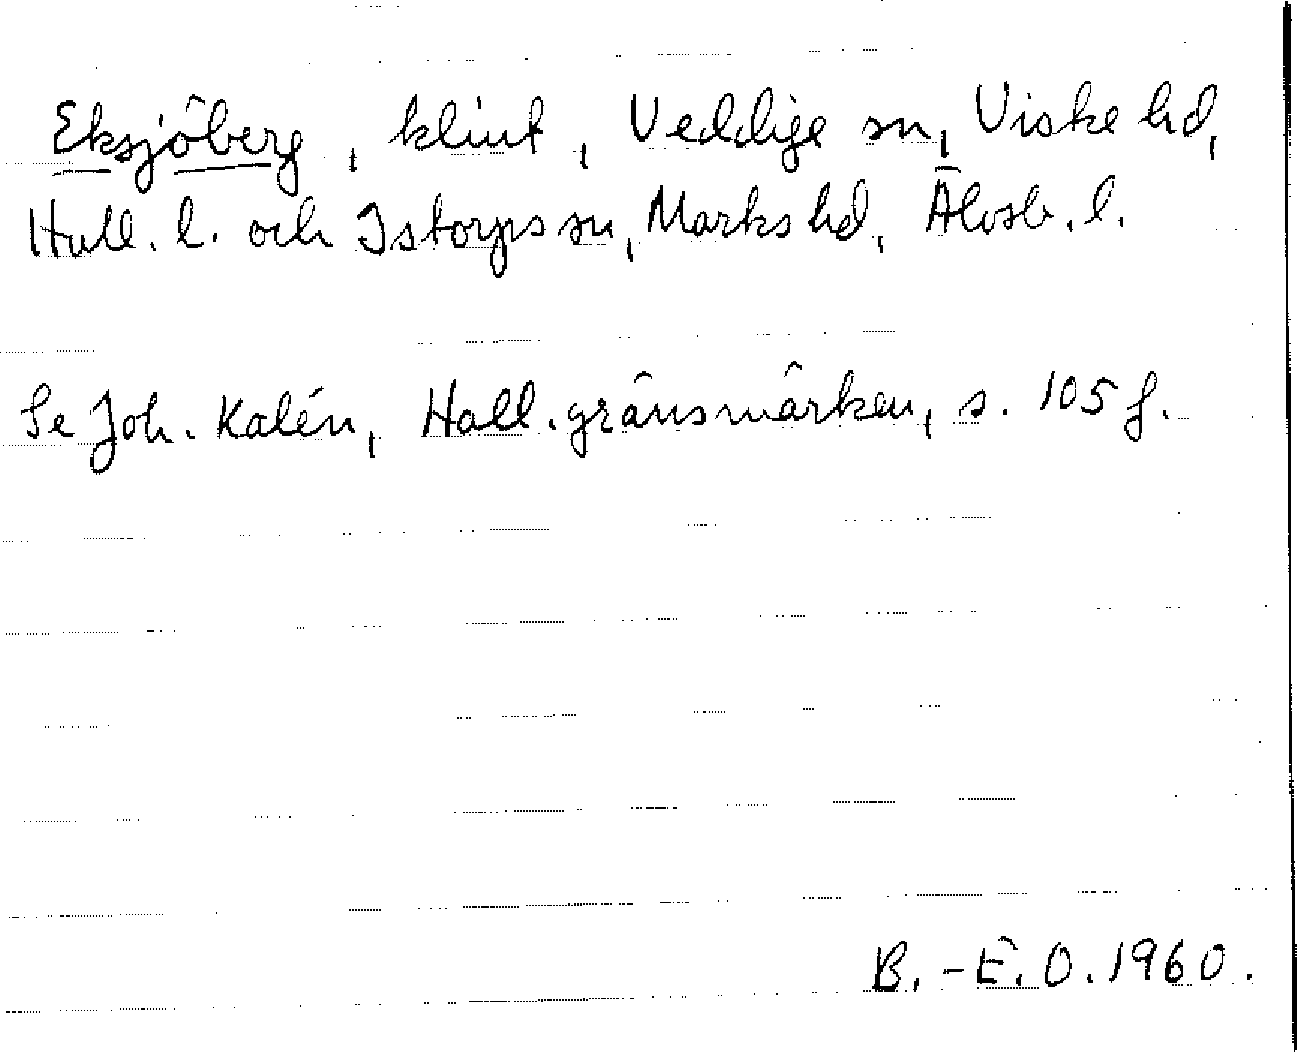 Eksjöberg, klint, Veddige sn, Viske hd,
Hall. l. och Istorps sn, Marks hd, Älvsb. l.
Se Joh. Kalén, Hall. gränsmärken, s. 105 f.
B.-E. O. 1960.